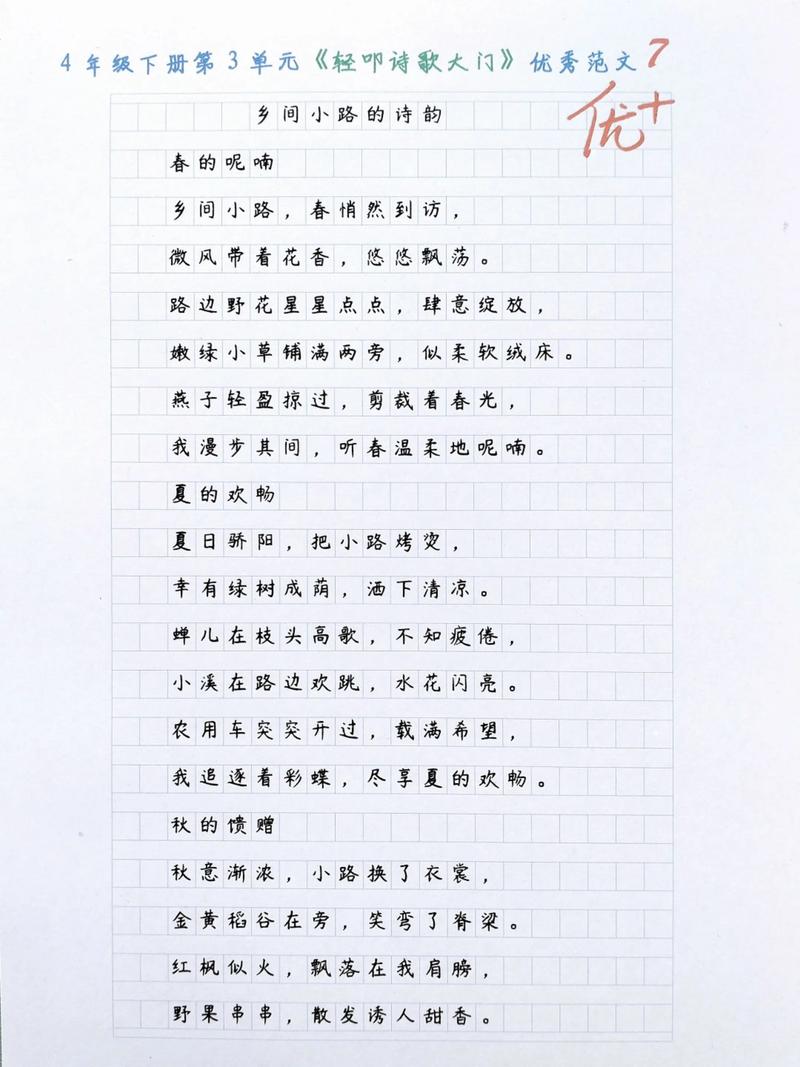 4年级下册第3单元《轻叩诗歌大门》优秀范文7
优+
乡间小路的诗韵
春的呢喃
乡间小路，春悄然到访，
微风带着花香，悠悠飘荡。
路边野花星星点点，肆意绽放，
嫩绿小草铺满两旁，似柔软绒床。
燕子轻盈掠过，剪裁着春光，
我漫步其间，听春温柔地呢喃。
夏的欢畅
夏日骄阳，把小路烤烫，
幸有绿树成荫，洒下清凉。
蝉儿在枝头高歌，不知疲倦，
小溪在路边欢跳，水花闪亮。
农用车突突开过，载满希望，
我追逐着彩蝶，尽享夏的欢畅。
秋的馈赠
秋意渐浓，小路换了衣裳，
金黄稻谷在旁，笑弯了脊梁。
红枫似火，飘落在我肩膀，
野果串串，散发诱人甜香。